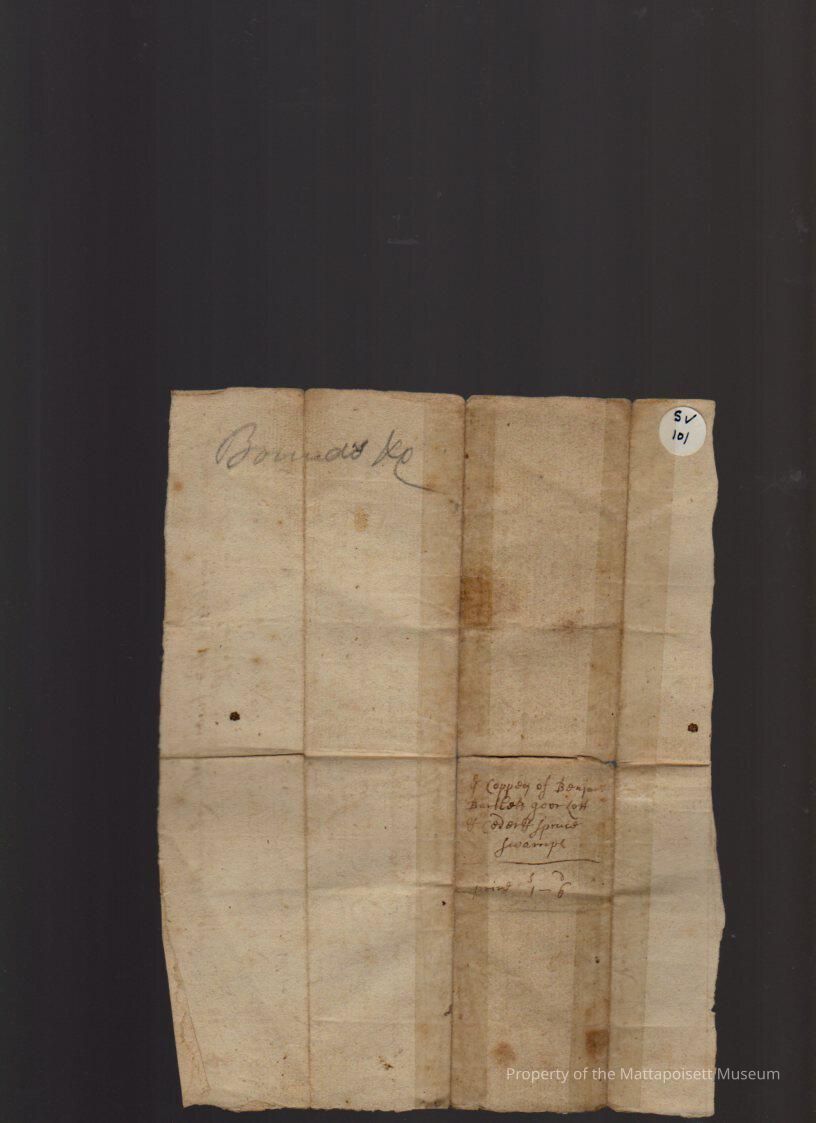 Bounds &c
SV
101
ye Coppey of Benjam
Bartlets
& Ceder & Spruce
swamps
prise s d
1 - 6
Property of the Mattapoisett Museum